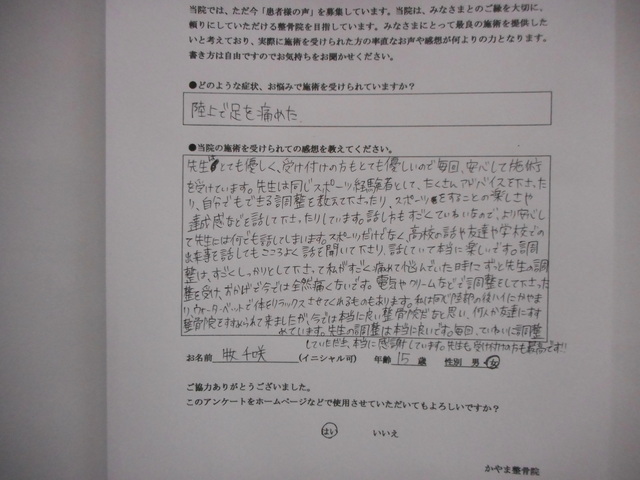 当院では、ただ今「患者様の声」を募集しています。当院は、みなさまとのご縁を大切に、
頼りにしていただける整骨院を目指しています。みなさまにとって最良の施術を提供した
いと考えており、実際に施術を受けられた方の率直なお声や感想が何よりの力となります。
書き方は自由ですのでお気持ちをお聞かせください。
●どのような症状、お悩みで施術を受けられていますか?
陸上で足を痛めた。
●当院の施術を受けられての感想を教えてください。
先生はとても優しく、受け付けの方もとても優しいので毎回、安心して施術
を受けています。先生は同じスポーツ経験者として、たくさんアドバイスを下さった
り、自分でもできる調整を教えて下さったり、スポーツをすることの楽しさや
達成感などを話して下さったりしています。話し方もすごくていねいなので、より安心し
て先生には何でも話してしまいます。スポーツだけでなく、高校の話や友達や学校での
出来事を話してもこころよく話を聞いて下さり、話していて本当に楽しいです。調
整は、すごくしっかりとして下さって私がすごく痛めて悩んでいた日まにずっと先生の調
整を受け、おかげで今では全然痛くないです。電気やクリームなどで調整をして下さった
り、ウォーターベットで体をリラックスさせてくれるものもあります。私は同じ陸部の後ハイにかやま
整骨院をすすめられて来ましたが、今では本当に良い整骨院だなと思い、何人か友達にすす
めています。先生の調整は本当に良いです。毎回、ていねいに調整
していただき、本当に感謝しています。先生も受け付けの方も最高です!!
お名前 牧 千咲 (イニシャル可) 年齢 15 歳 性別 男・女
ご協力ありがとうございました。
このアンケートをホームページなどで使用させていただいてもよろしいですか?
はい いいえ
かやま整骨院